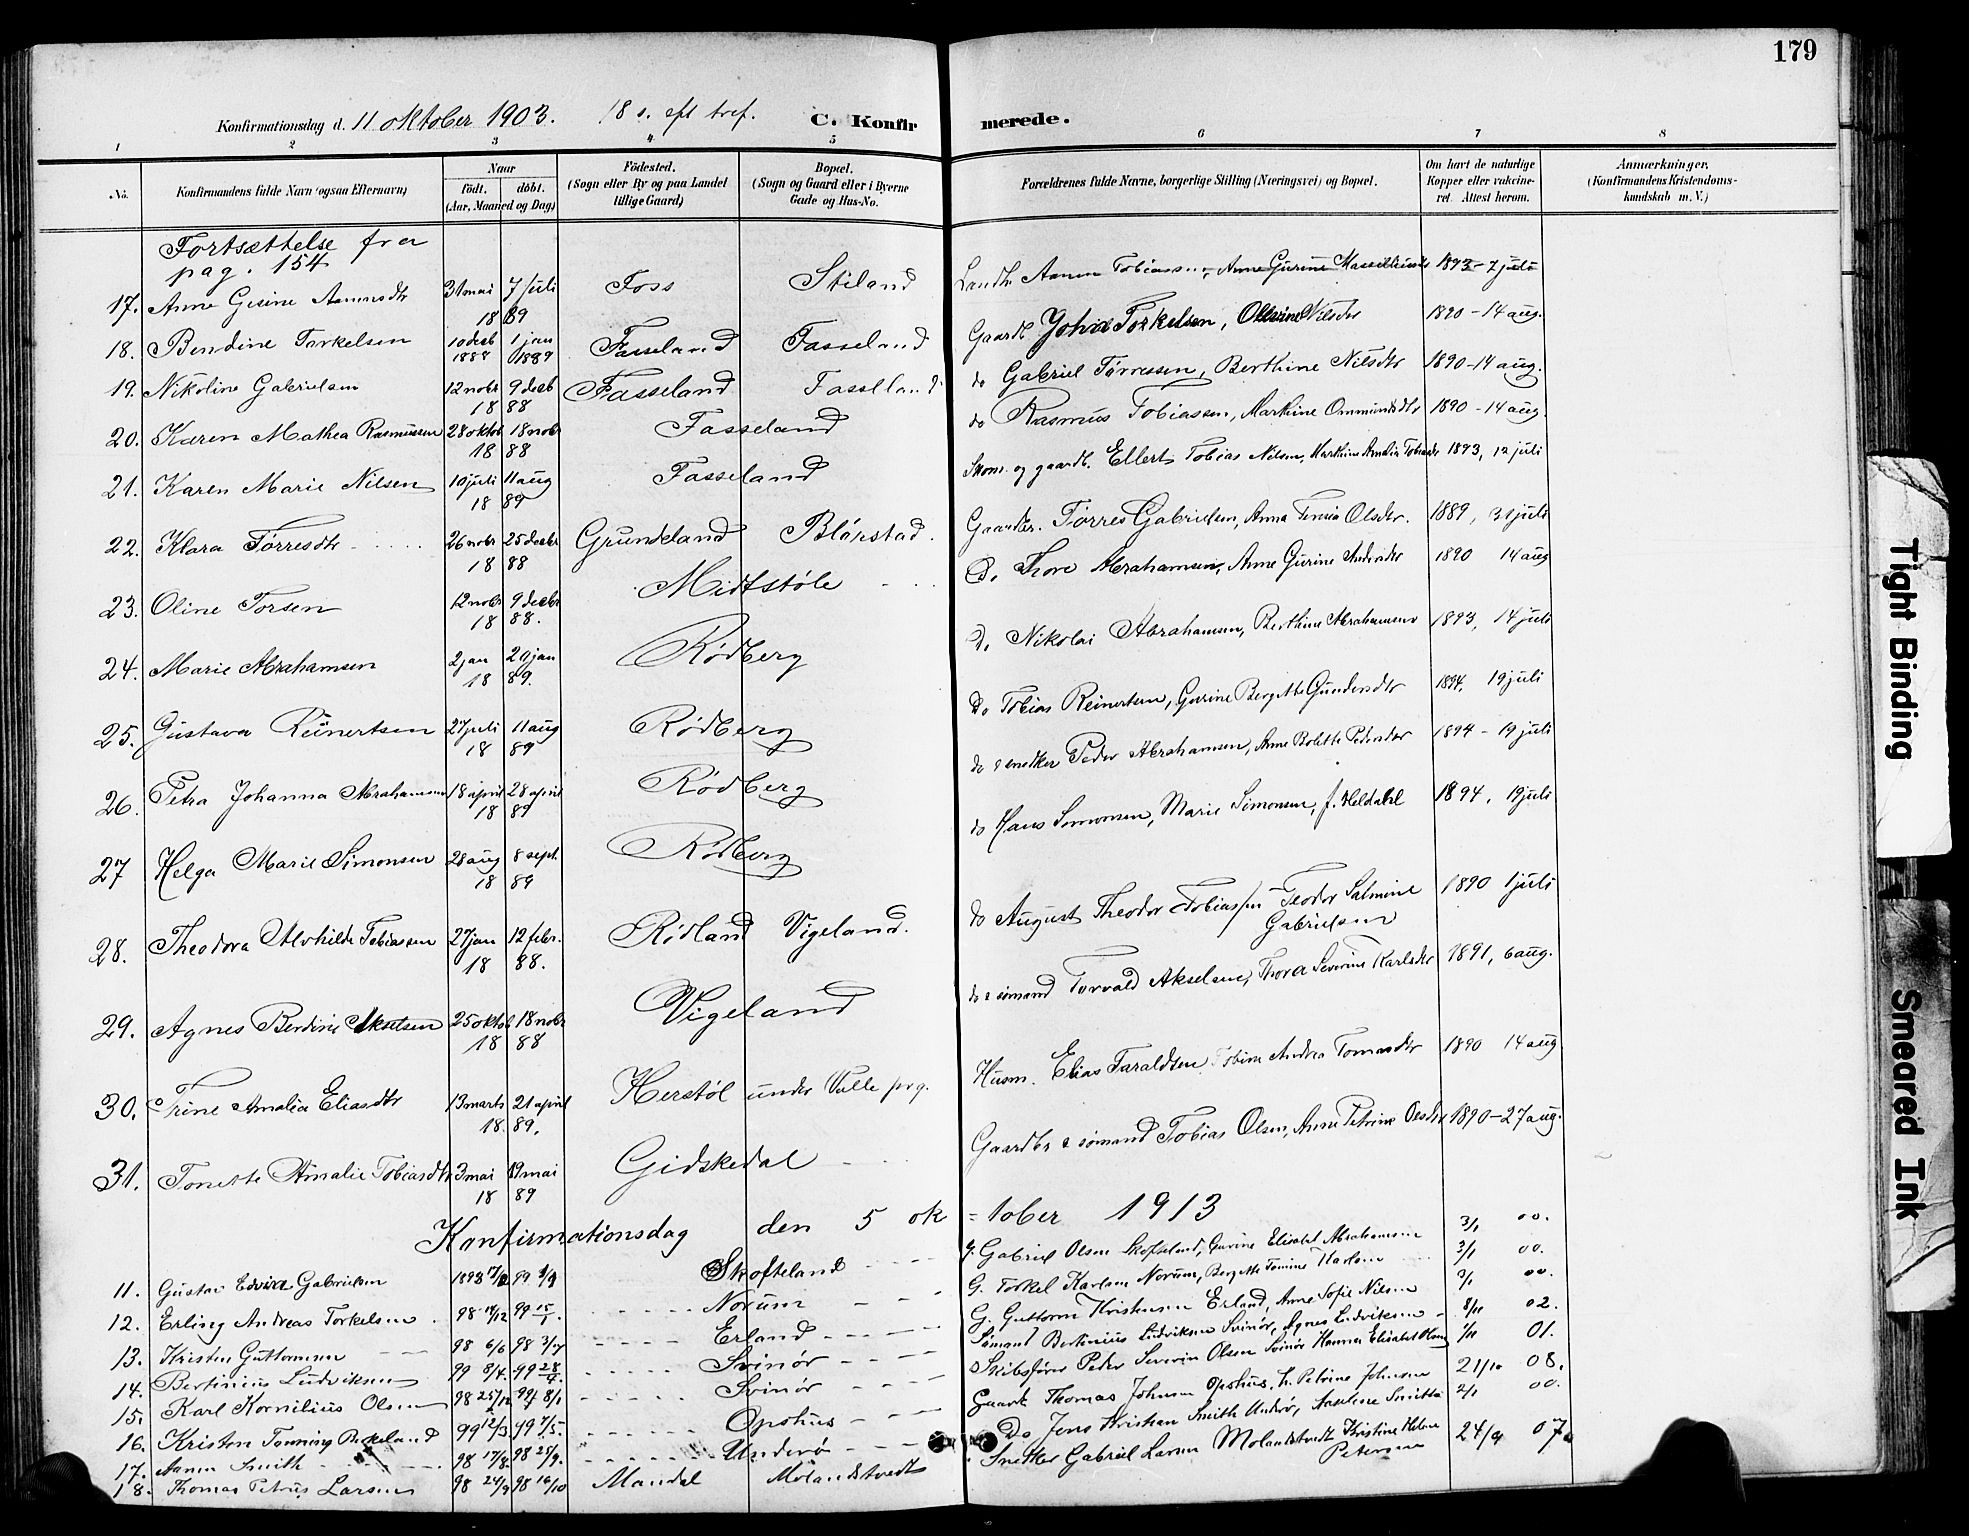 179
Konfirmationsdag d. 11 oktober 1903. 18 s. eft tref. C. Konfir merede.
1 2 3 4 5 6 7 8
No. Konfirmandens fulde Navn (ogsaa Efternavn) Naar født. døbt. (Aar, Maaned og Dag) Födested. (Sogn eller By og paa Landet tillige Gaard) Bopæl. (Sogn og Gaard eller i Byerne Gade og Hus-No. Forældrenes fulde Navne, borgerlige Stilling (Næringsvei) og Bopæl. Om havt de naturlige Kopper eller vakcineret. Attest herom. Anmærkninger. (Konfirmandens Kristendomskundskab m. V.)
Fortsættelse fra
pag. 154
17. Anne Gesine Aanensdtr 31 mai 7 juli 18 89 Foss Stiland Landh. Aanen Tobiassen, Anne Gurine 1893 - 7 juli
18. Bendine Torkelsen 10 desb 1888 1 jan 1889 Fasseland Fasseland Gaardb Torkelsen, Nilsdtr 1890 - 14 aug.
19. Nikoline Gabrielsen 12 nobr 9 desb 18 88 Fasseland Fasseland do Gabriel Tørressen, Berthine Nilsdtr 1890 - 14 aug.
20. Karen Mathea Rasmussen 28 oktob 18 nobr 18 88 Fasseland do Rasmus Tobiassen, Markine Ommundsdtr 1890 - 14 aug.
21. Karen Marie Nilsen 10 juli 11 aug 18 89 Fasseland Skom. og gaardb. Ellert Tobias Nilsen, Amalia Tobiasdr 1893, 12 juli
22. Klara Tørresdtr 26 nobr 25 desbr 18 88 Grundeland Blørstad. Gaardbr. Tørres Gabrielsen, Anna Olsdtr. 1889, 31 juli
23. Oline Torsen 12 nobr 9 desbr 18 88. Midtstøle D. Thore Abrahamsen, Anne Gurine 1890 14 aug
24. Marie Abrahamsen 2 jan 20 jan 18 89. Rødberg D. Nikolai Abrahamsen, Berthine Abrahamsen 1893, 14 juli
25. Gustava Reinertsen 27 juli 11 aug 18 89 Rødberg Do Tobias Reinertsen, Gurine Bergitte Gundersdtr 1894, 19 juli
26. Petra Johanna Abrahamsen 18 april 28 april 18 89 Rødberg do & snedker Peder Abrahamsen, Anne Bolette Pedersdtr 1894 - 19 juli
27 Helga Marie Simonsen 28 aug 8 sept. 18 89 Rødberg do Hans Simonsen, Marie Simonsen, f. Heldahl 1894, 19 juli
28. Theodora Alvhilde Tobiassen 27 jan 12 febr. 18 88. Rødland Vigeland. do August Theodor Tobiassen Teodor Salmine Gabrielsen 1890 1 juli
29. Agnes Berdine 25 oktob 18 nobr 18 88 Vigeland do & sømand Torvald Akselsen, Thora Severine Karlsdtr 1891, 6 aug.
30. Trine Amalia Eliasdtr 13 marts 21 april 18 89. Herstøl under Valle prg. Husm. Elias Taraldsen Andrea Tomasdtr 1890 14 aug.
31. Tonette Amalie Tobiasdtr 3 mai 19 mai 18 89 Gidskedal Gaardbr & sømand Tobias Olsen, Anne Petrine 1890 - 27 aug.
Konfirmationsdag den 5 ok = tober 1913
11. Gustav Edvin Gabrielsen 99 Skofteland G. Gabriel Olsen Skofteland, Gurine Elisabet Abrahamsen 3/1 00.
12. Erling Andreas Torkelsen 98 14/12 99 15/1 Norum G. Torkel Karlsen Norum, Bergitte Tomine Karlsen 3/1 00.
13. Kristen Guttormsen 98 6/6 98 3/7 Erland G. Guttorm Kristensen Erland, Anne Sofie Nilsen 3/1 00.
14. Bertinius Ludviksen 99 8/4 99 28/4 Svinør Sømand Bertinius Ludviksen Svinør, Agnes Ludviksen 8/11 02.
15. Karl Kornilius Olsen 98 25/12 99 8/1 Svinør Skibsfører Peder Severin Olsen Svinør Hanna Elisabet Olsen 1/11 01.
16. Kristen Tønning 99 12/3 99 7/5. Opshus Gaardb Thomas Johnsen Opshus, Petrine Johnsen 21/10 08.
17. Aanen Smith 98 17/8 98 25/9. Underø Do Jens Kristian Smith Underø, 2/1 00.
18. Thomas Petrus Larsen 98 24/9 98 16/10 Mandal Molandstvedt Snekker Gabriel Larsen Molandstvedt Kristine Helene Petersen 24/9 07
Tight Binding
Smeared Ink